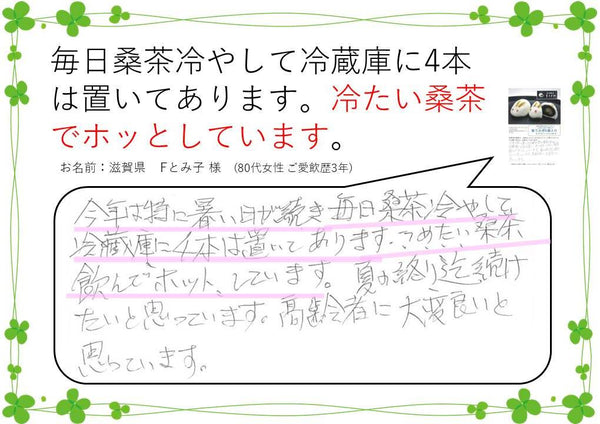 毎日桑茶冷やして冷蔵庫に4本
は置いてあります。冷たい桑茶
でホッとしています。
お名前：滋賀県　Fとみ子 様　(80代女性 ご愛飲歴3年)
今年は特に暑い日が続き毎日桑茶冷やして
冷蔵庫に4本は置いてあります.つめたい桑茶
飲んでホット、しています。夏の終り迄続け
たいと思っています。高齢者に大変良いと
思っています。